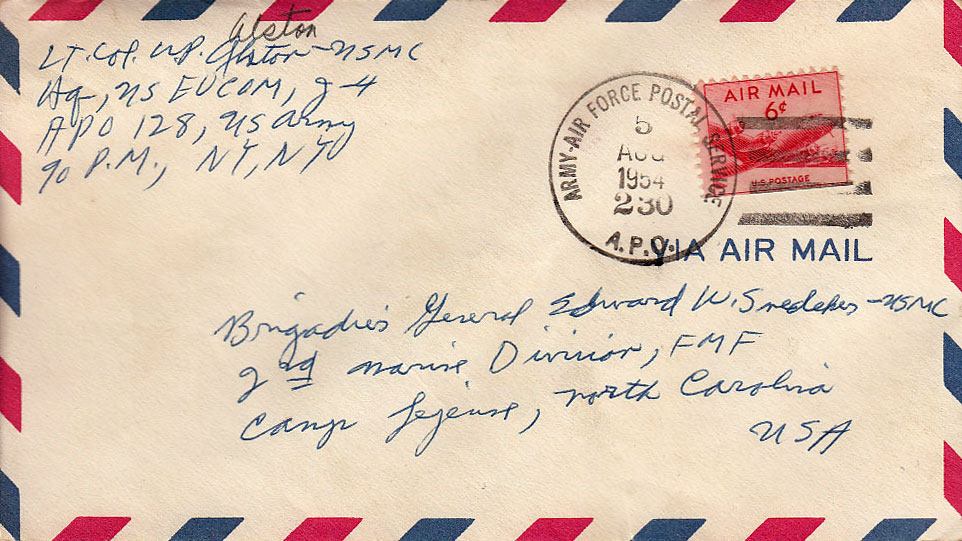 Alston
Lt. Col. W.P. Alston - USMC
Hq, US EUCOM, J-4
APO 128, US Army
% P.M., NY, NY
ARMY-AIR FORCE POSTAL SERVICE
5
AUG
1954
230
A.P.O.
AIR MAIL
6¢
U.S. POSTAGE
VIA AIR MAIL
Brigadier General Edward W. Snedeker - USMC
2nd Marine Division, FMF
Camp Lejeune, North Carolina
USA